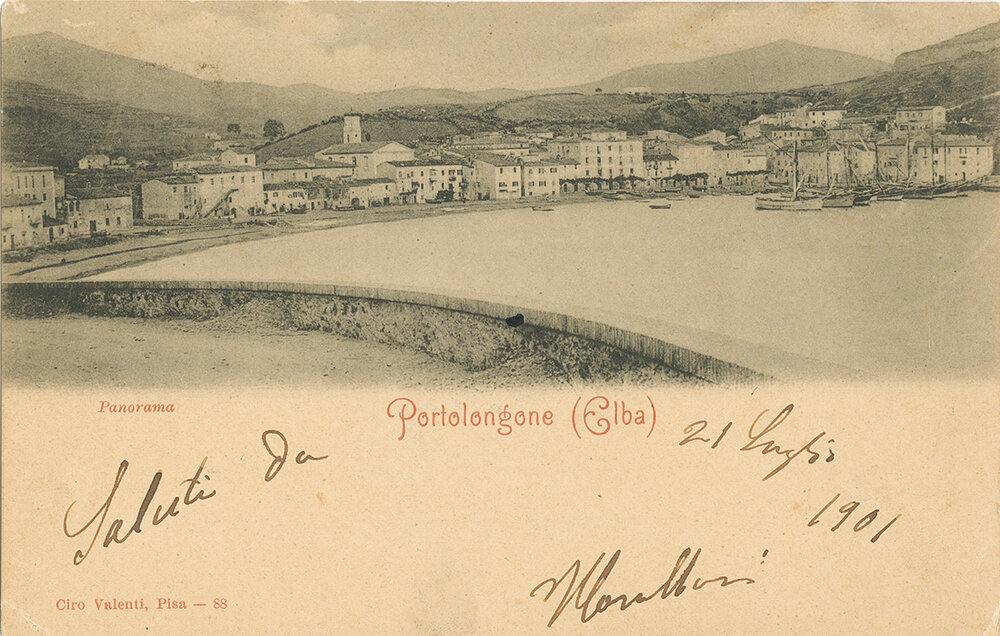 Panorama
Portolongone (Elba)
Saluti da
21 Luglio
1901
Ciro Valenti, Pisa — 88